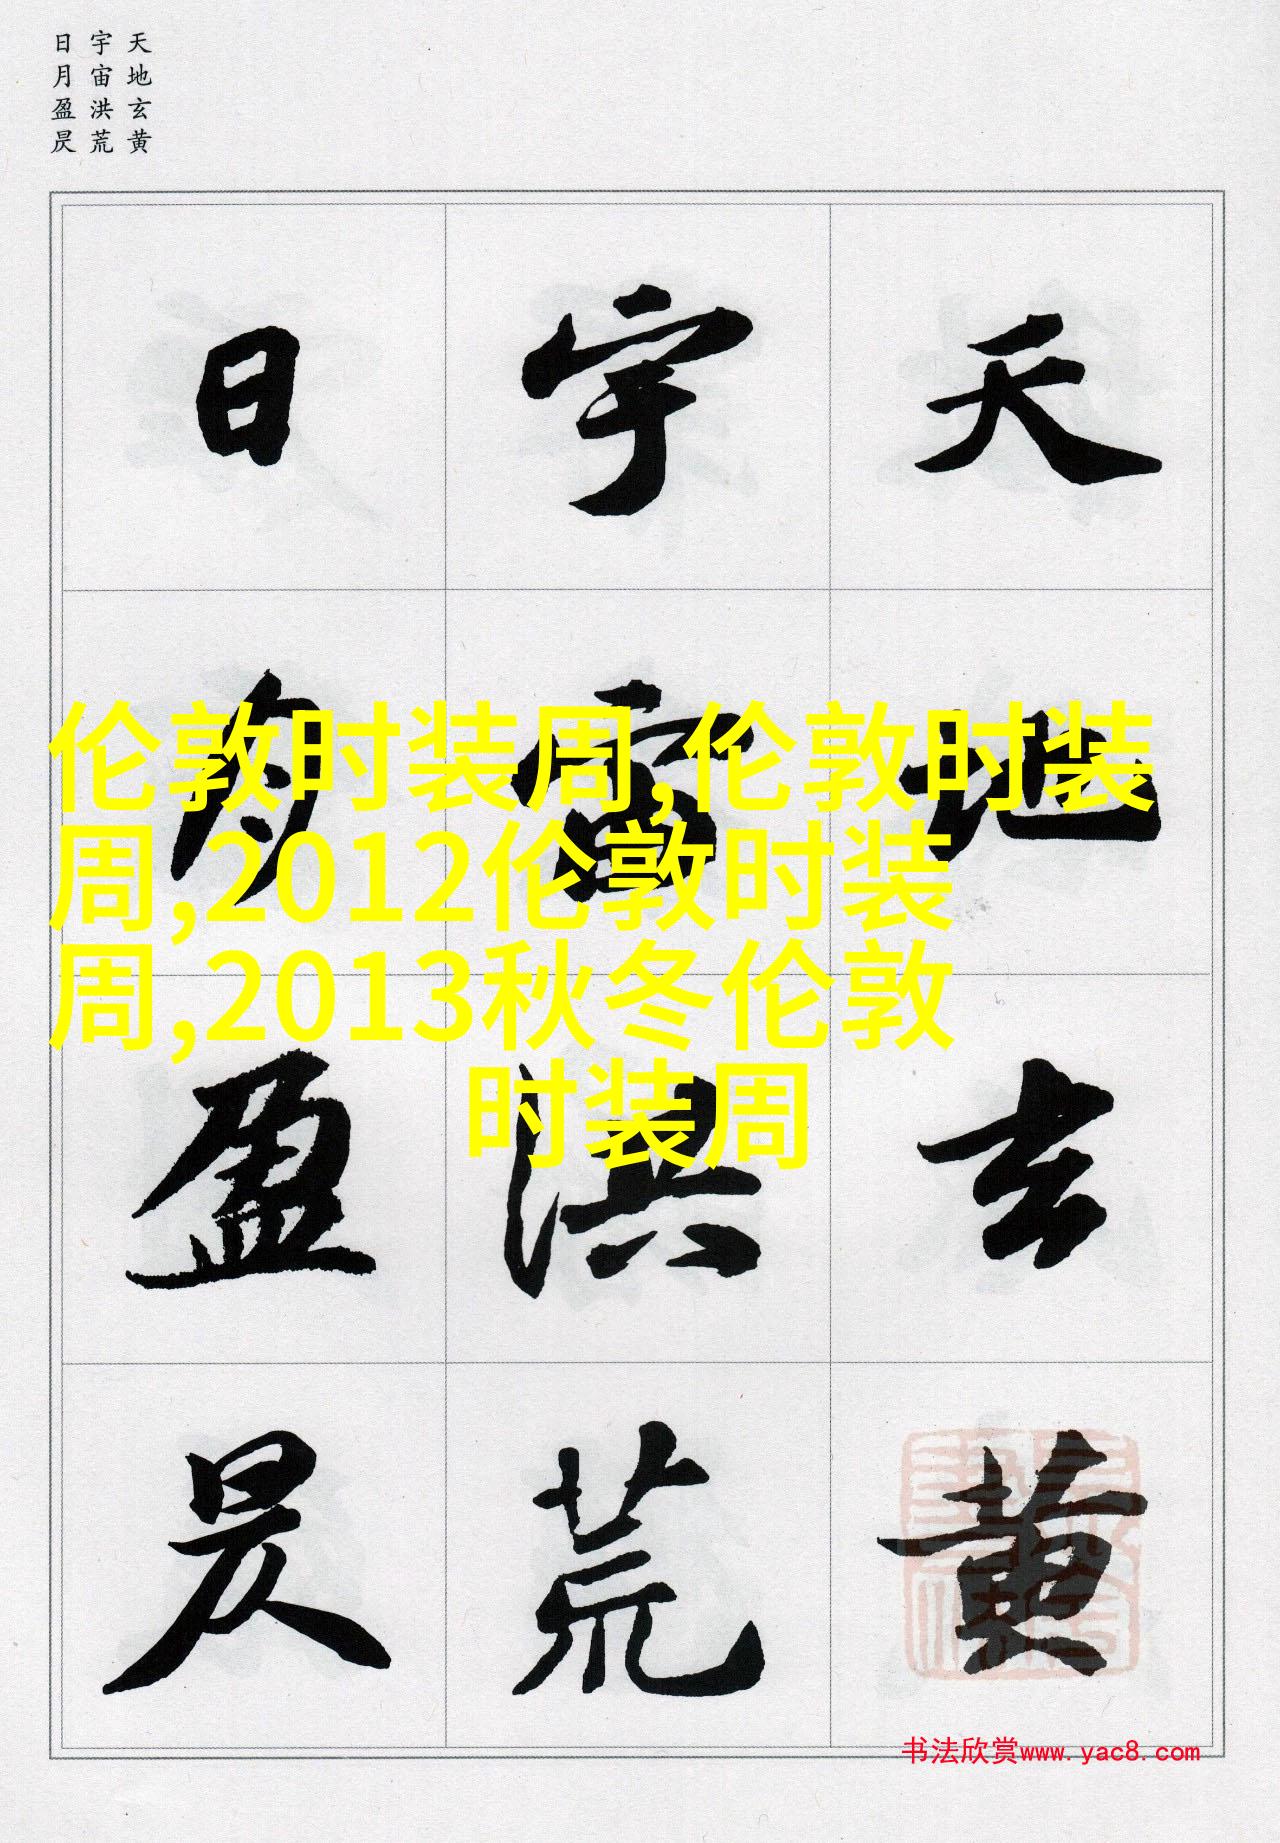 天地玄黄
宇宙洪荒
日月盈昃
天地玄黄
宇宙洪荒
日月盈昃
伦敦时装周,伦敦时装
周,2012伦敦时装
周,2013秋冬伦敦
时装周
书法欣赏www.yac8.com